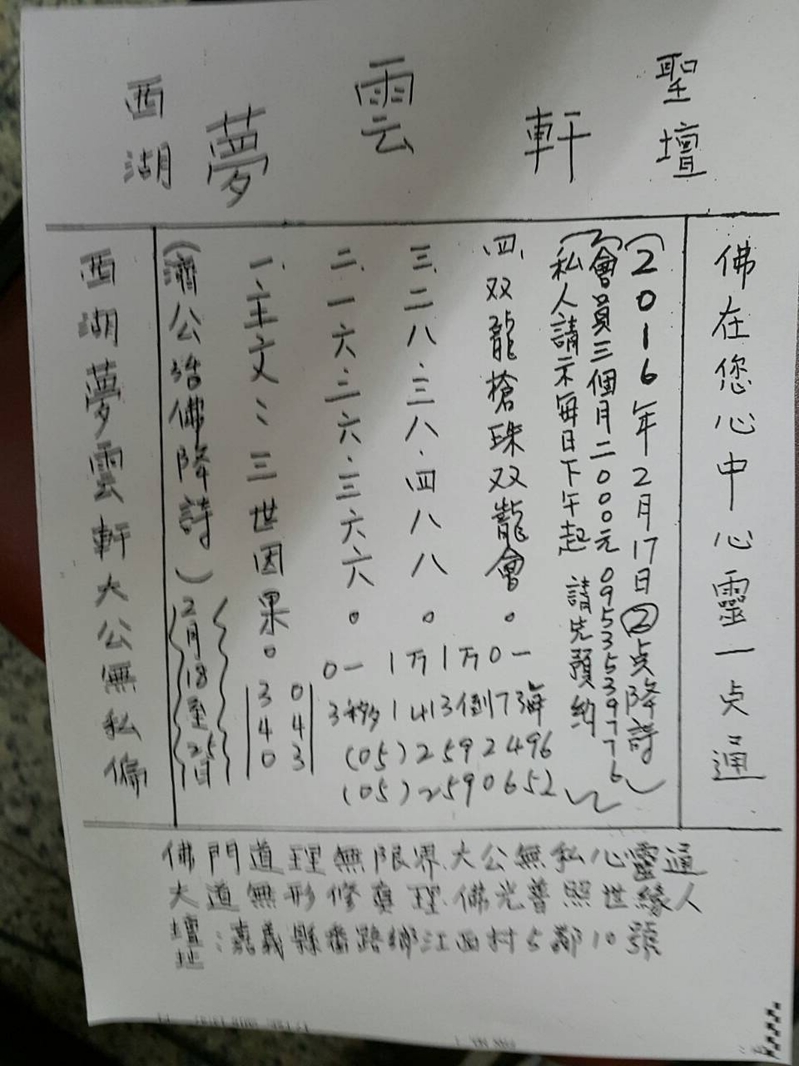 西湖 夢雲軒 聖壇
西湖夢雲軒大公無私偏
(濟公活佛降詩)
2月18至25日
一、主文：三世因果。
340
043
二、一六.三六.三六六。
三、二八.三八.四八八。
四、双龍槍珠双龍會。
0一 1万1万0一
(05)2592496
(05)2590652
私人請示每日下午起 請先預約
會員三個月二000元 0953539776
(2016年2月17日②点降詩)
佛在您心中心靈一点通
佛門道理無限界.大公無私心靈通
大道無形修真理.佛光普照世緣人
壇址:嘉義縣番路鄉江西村5鄰10號